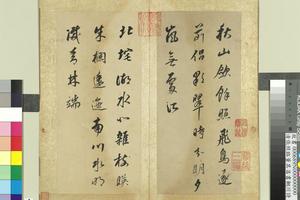 秋山斂餘照飛鳥逐
前侶彩翠時分明夕
嵐無處所
北垞湖水北雜樹映
朱欄逶迤南川水明
滅青林端